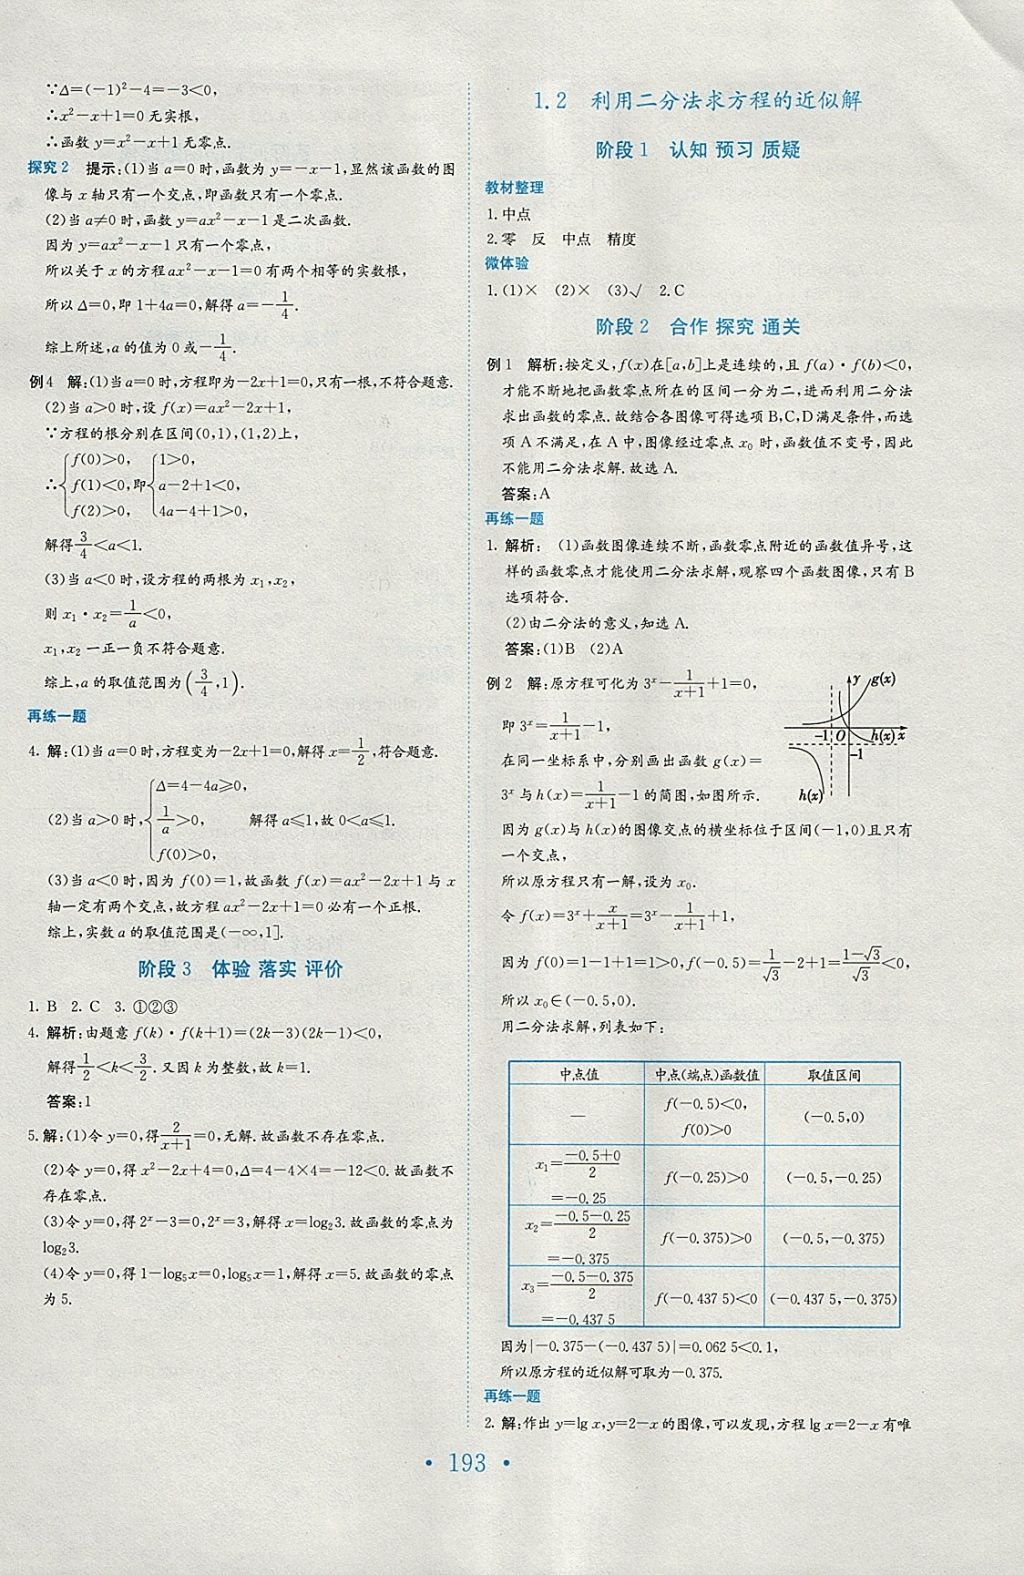 ∵Δ=(-1)²-4=-3<0,
∴x²-x+1=0无实根,
∴函数 y=x²-x+1无零点.
探究2 提示:(1)当 a=0时,函数为 y=-x-1,显然该函数的图
像与 x 轴只有一个交点,即函数只有一个零点.
(2)当 a≠0时,函数 y=ax²-x-1是二次函数.
因为 y=ax²-x-1只有一个零点,
所以关于 x 的方程ax²-x-1=0有两个相等的实数根,
所以 Δ=0,即1+4a=0,解得 a=-1/4.
综上所述,a 的值为0或-1/4.
例4 解:(1)当 a=0时,方程即为-2x+1=0,只有一根,不符合题意.
(2)当 a>0时,设 f(x)=ax²-2x+1,
∵方程的根分别在区间(0,1),(1,2)上,
∴{f(0)>0, f(1)<0, f(2)>0, 即{1>0, a-2+1<0, 4a-4+1>0,
解得3/4<a<1.
(3)当 a<0时,设方程的两根为 x₁,x₂,
则 x₁·x₂=1/a<0,
x₁,x₂ 一正一负不符合题意.
综上,a 的取值范围为(3/4,1).
再练一题
4. 解:(1)当 a=0时,方程变为-2x+1=0,解得 x=1/2,符合题意.
(2)当 a>0时,{Δ=4-4a≥0, 1/a>0, f(0)>0, 解得a≤1,故0<a≤1.
(3)当 a<0时,因为 f(0)=1,故函数 f(x)=ax²-2x+1与 x
轴一定有两个交点,故方程 ax²-2x+1=0必有一个正根.
综上,实数 a 的取值范围是(-∞,1].
阶段3 体验 落实 评价
1. B 2. C 3. ①②③
4. 解析:由题意 f(k)·f(k+1)=(2k-3)(2k-1)<0,
解得1/2<k<3/2.又因 k 为整数,故 k=1.
答案:1
5. 解:(1)令 y=0,得2/(x+1)=0,无解.故函数不存在零点.
(2)令 y=0,得 x²-2x+4=0,Δ=4-4×4=-12<0.故函数不
存在零点.
(3)令 y=0,得2ˣ-3=0,2ˣ=3,解得 x=log₂3.故函数的零点为
log₂3.
(4)令 y=0,得1-log₅x=0,log₅x=1,解得 x=5.故函数的零点
为5.
1.2 利用二分法求方程的近似解
阶段1 认知 预习 质疑
教材整理
1. 中点
2. 零 反 中点 精度
微体验
1. (1)× (2)× (3)√ 2. C
阶段2 合作 探究 通关
例1 解析:按定义,f(x)在[a,b]上是连续的,且 f(a)·f(b)<0,
才能不断地把函数零点所在的区间一分为二,进而利用二分法
求出函数的零点.故结合各图像可得选项B,C,D满足条件,而选
项A不满足,在A中,图像经过零点 x₀ 时,函数值不变号,因此
不能用二分法求解.故选A.
答案:A
再练一题
1. 解析: (1)函数图像连续不断,函数零点附近的函数值异号,这
样的函数零点才能使用二分法求解,观察四个函数图像,只有B
选项符合.
(2)由二分法的意义,知选A.
答案:(1)B (2)A
例2 解:原方程可化为 3ˣ-1/(x+1)+1=0,
即 3ˣ=1/(x+1)-1,
在同一坐标系中,分别画出函数 g(x)=
3ˣ 与 h(x)=1/(x+1)-1的简图,如图所示.
y g(x)
-1 O h(x) x
-1
h(x)
因为 g(x)与 h(x)的图像交点的横坐标位于区间(-1,0)且只有
一个交点,
所以原方程只有一解,设为 x₀.
令 f(x)=3ˣ+x/(x+1)=3ˣ-1/(x+1)+1,
因为 f(0)=1-1+1=1>0,f(-0.5)=1/√3-2+1=(1-√3)/√3<0,
所以 x₀∈(-0.5,0).
用二分法求解,列表如下:
中点值 中点(端点)函数值 取值区间
— f(-0.5)<0, f(0)>0 (-0.5,0)
x₁=(-0.5+0)/2=-0.25 f(-0.25)>0 (-0.5,-0.25)
x₂=(-0.5-0.25)/2=-0.375 f(-0.375)>0 (-0.5,-0.375)
x₃=(-0.5-0.375)/2=-0.437 5 f(-0.437 5)<0 (-0.437 5,-0.375)
因为|-0.375-(-0.437 5)|=0.062 5<0.1,
所以原方程的近似解可取为-0.375.
再练一题
2. 解:作出 y=lg x,y=2-x的图像,可以发现,方程 lg x=2-x有唯
· 193 ·